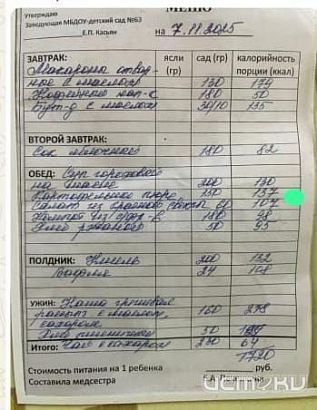 МЕНЮ
Утверждаю
Заведующая МБДОУ-детский сад №63
Е.П. Касьян
на 7.11.2025
ЗАВТРАК: ясли (гр) сад (гр) калорийность порции (ккал)
Макароны отвар-
ные с маслом 130 174
Кофейный нап-к 180 50
Бут-д с маслом 30/10 135
ВТОРОЙ ЗАВТРАК:
Сок яблочный 180 82
ОБЕД: Суп гороховый
на 200 130
Картофельное пюре 137
салат из свежей 60 107
Компот из с/фр-в 180 98
Хлеб ржаной 50 95
ПОЛДНИК: Кисель 200 132
Вафля 24 108
УЖИН: Каша гречневая
рассып. с маслом, 160 278
сахаром
Хлеб пшеничный 50
Итого: Чай с сахаром 200 64
1720
Стоимость питания на 1 ребенка руб.
Составила медсестра
ИСТОКИ